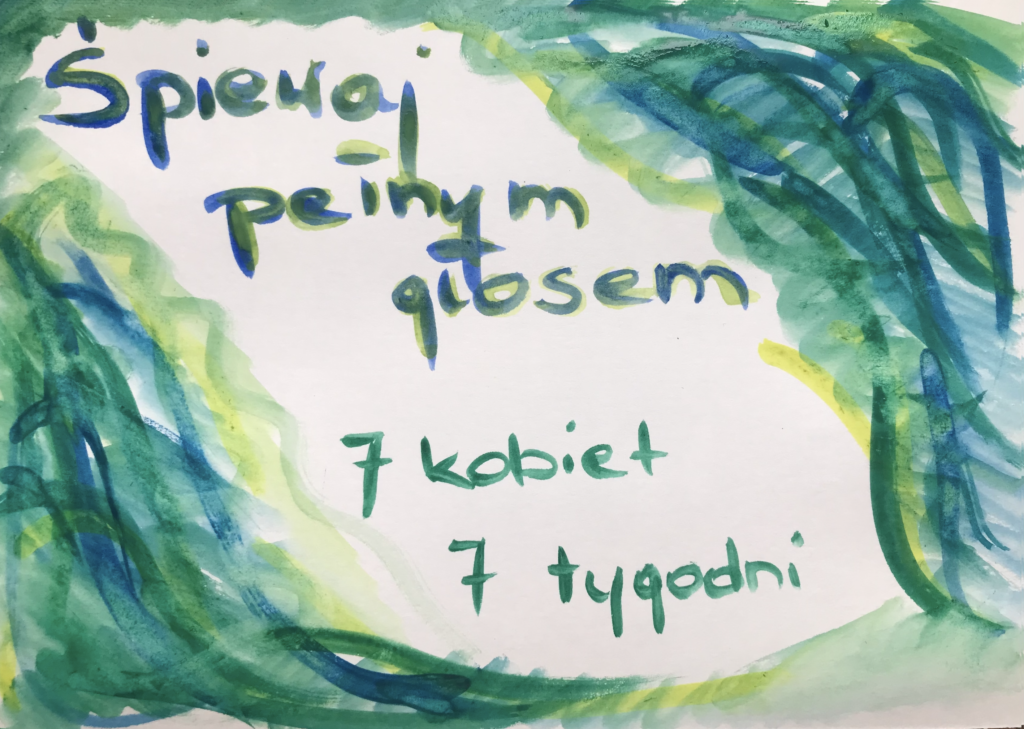 Śpiewaj
pełnym
głosem
7 kobiet
7 tygodni